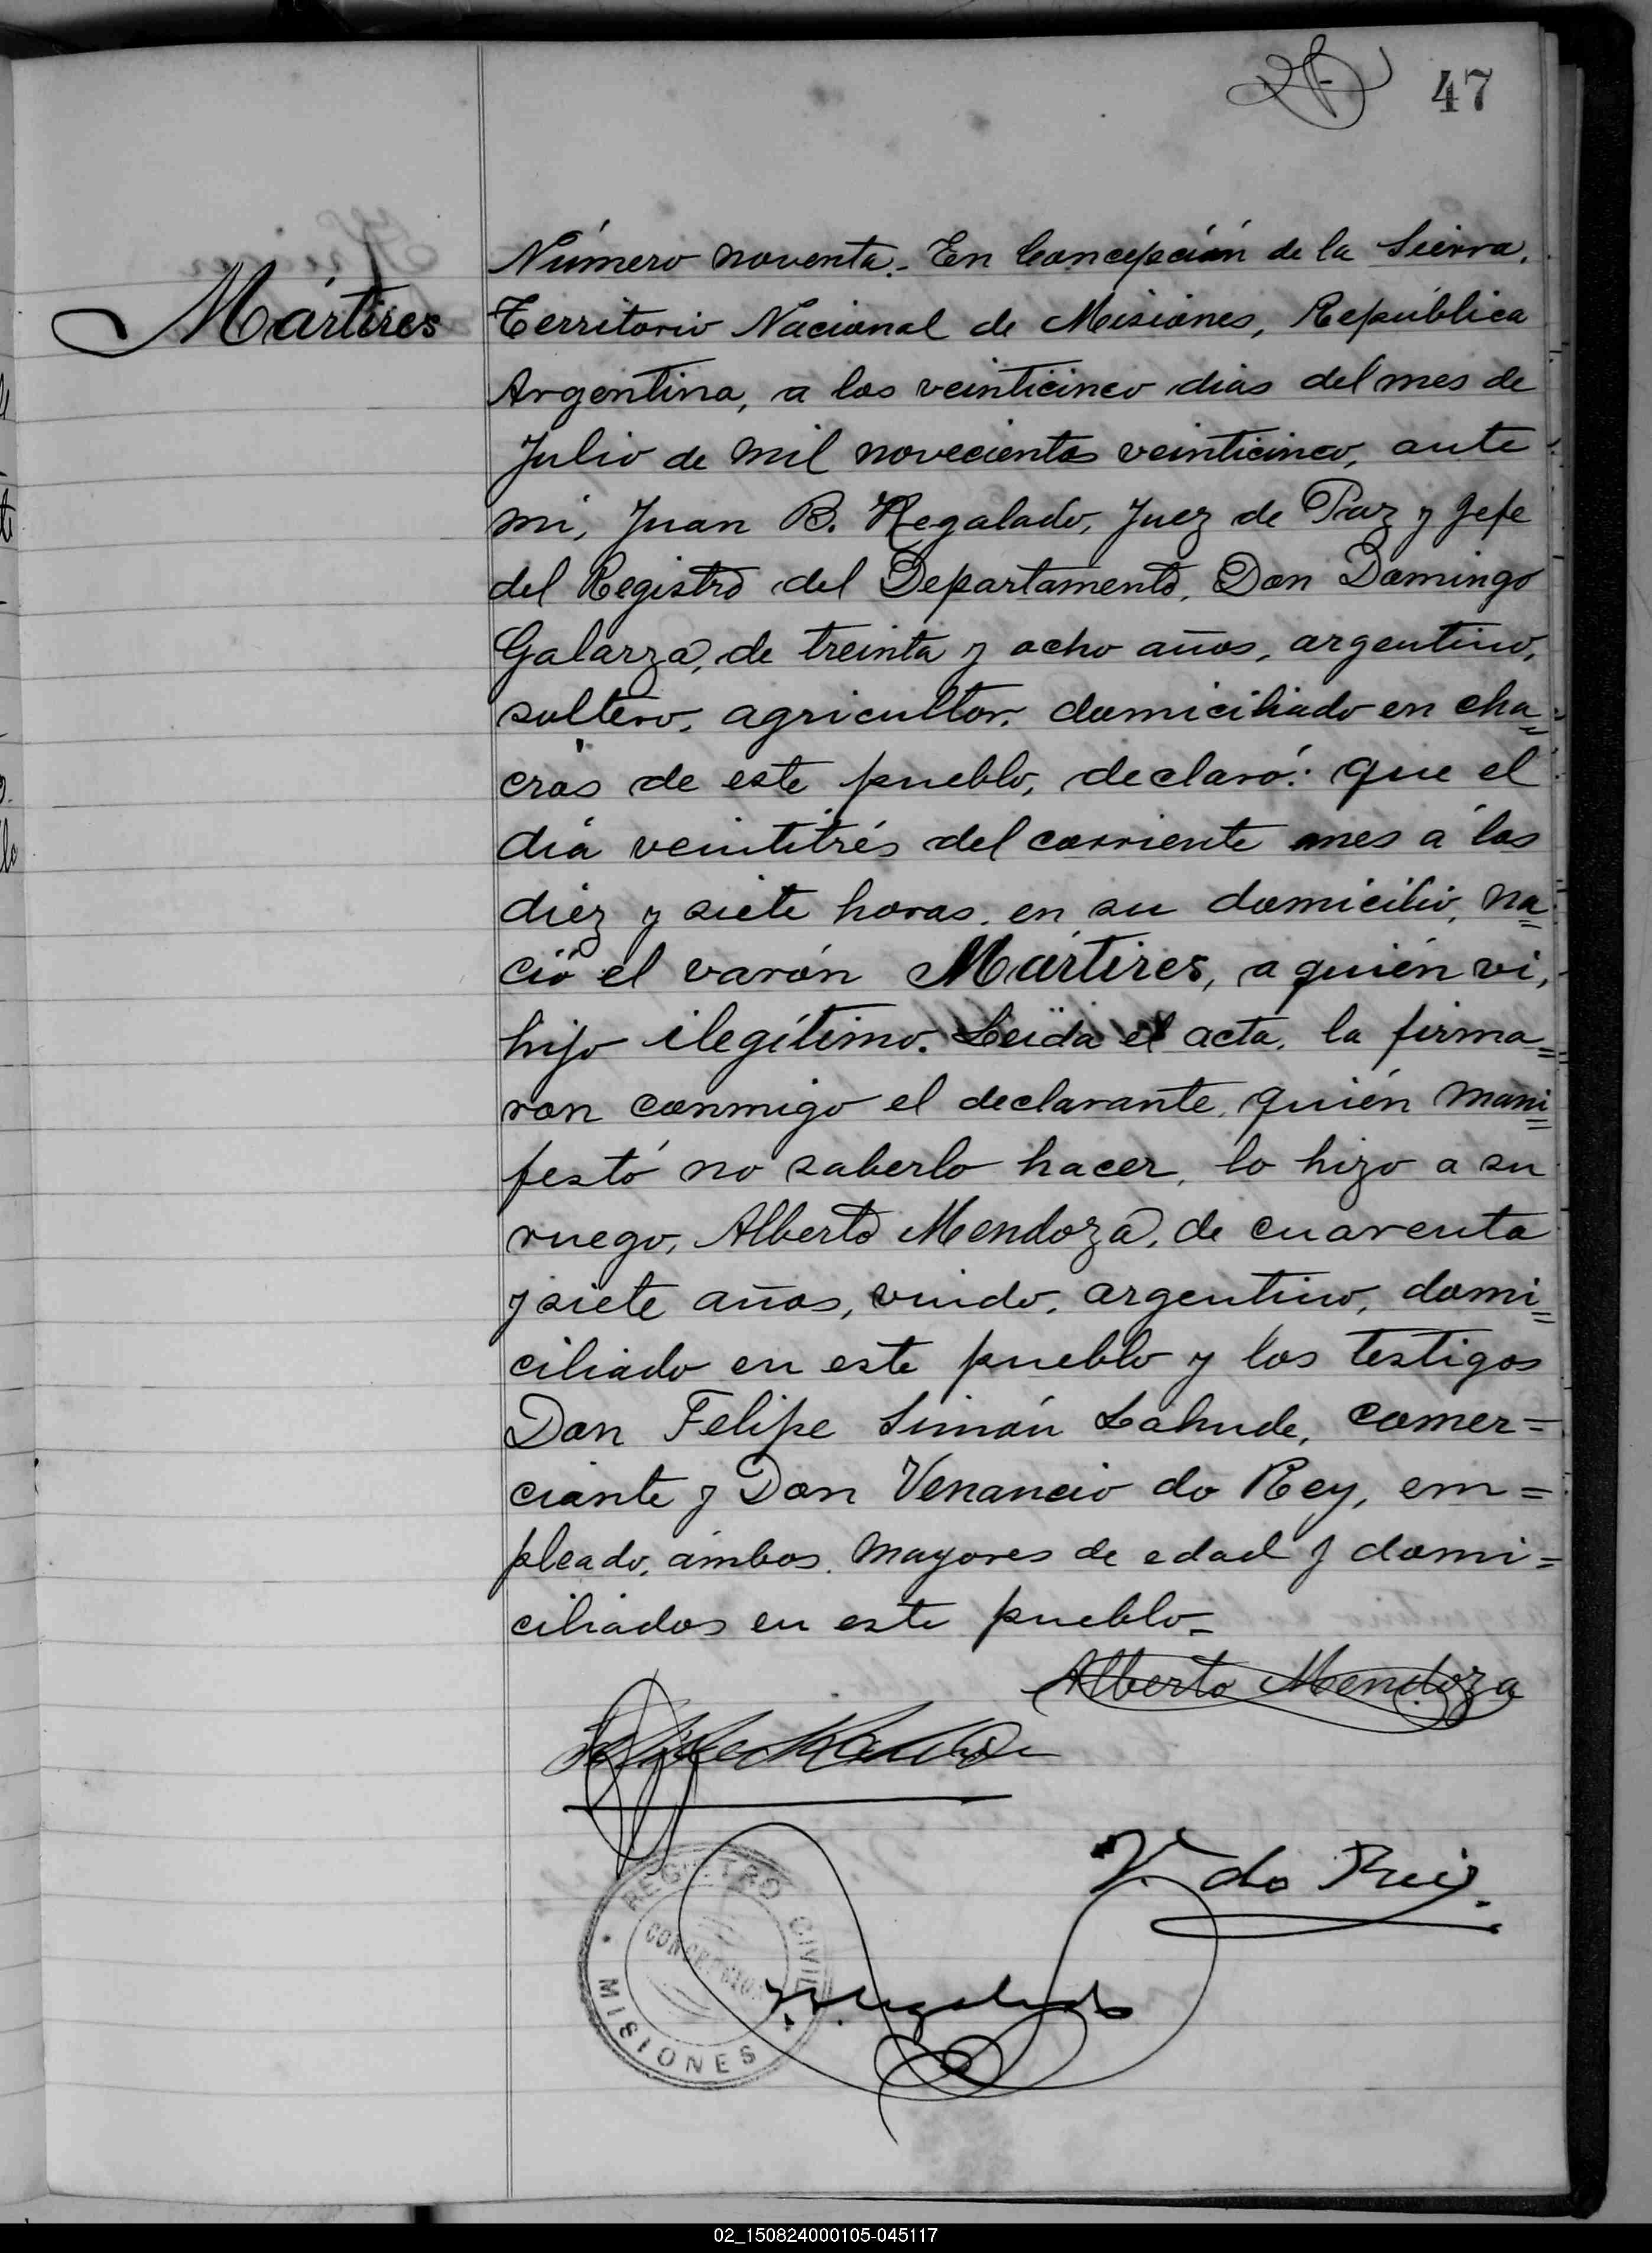 47
Mártires
Número noventa.- En Concepción de la Sierra,
Territorio Nacional de Misiones, República
Argentina, a los veinticinco dias del mes de
Julio de mil novecientos veinticinco, ante
mi, Juan B. Regalado, Juez de Paz y Jefe
del Registro del Departamento, Don Domingo
Galarza, de treinta y ocho años, argentino,
soltero, agricultor, domiciliado en cha=
cras de este pueblo, declaró: que el
dia veintitrés del corriente mes a las
diez y siete horas, en su domicilio, na=
ció el varón Mártires, a quién vi,
hijo ilegítimo. Leida el acta, la firma=
ron conmigo el declarante, quién mani=
festó no saberlo hacer, lo hizo a su
ruego, Alberto Mendoza, de cuarenta
y siete años, viudo, argentino, domi=
ciliado en este pueblo y los testigos
Don Felipe Simón Lahude, comer=
ciante y Don Venancio do Rey, em=
pleado, ámbos mayores de edad y domi=
ciliados en este pueblo-
Alberto Mendoza
V. do Rey
REGISTRO CIVIL
CONCEPCION
MISIONES
02_150824000105-045117